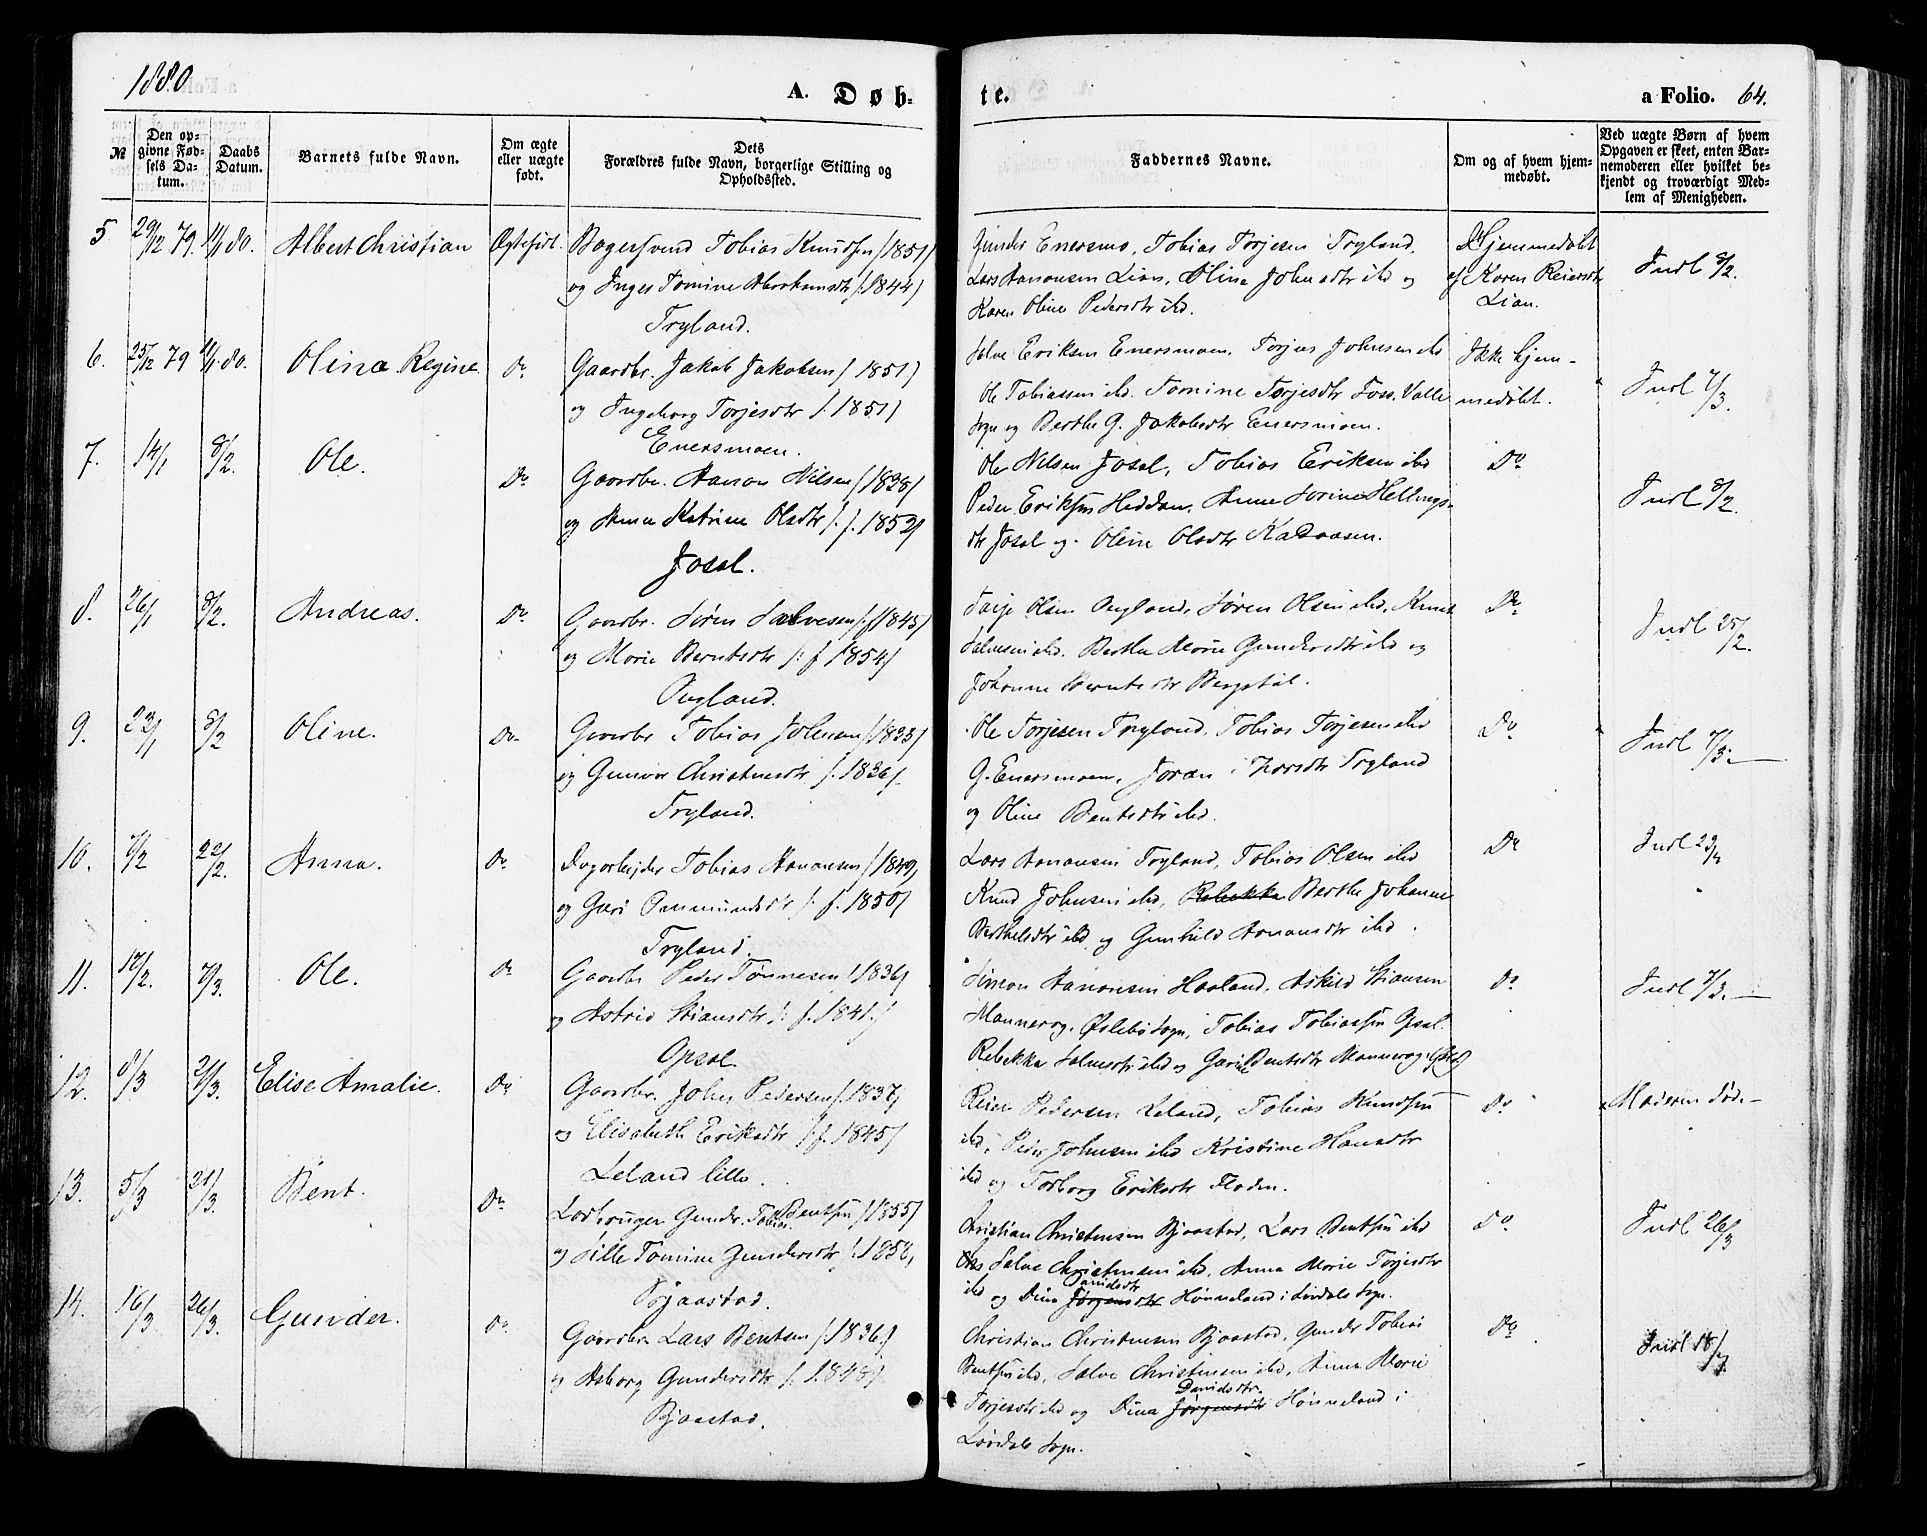 1880
A. Døb-
te.
a Folio. 64.
№
Den op-
givne Fød-
sels Da-
tum.
Daabs
Datum.
Barnets fulde Navn.
Om ægte
eller uægte
født.
Dets
Forældres fulde Navn, borgerlige Stilling og
Opholdssted.
Faddernes Navne.
Om og af hvem hjem-
medøbt.
Ved uægte Børn af hvem
Opgaven er skeet, enten Bar-
nemoderen eller hvilket be-
kjendt og troværdigt Med-
lem af Menigheden.
5 29/12 79. 11/1 80. Albert Christian Ægtefødt.
Tobias Knudsen f. 1851
og Inger Tomine Abrahamsdtr f. 1844
Tryland.
Gunder Enersmo, Tobias Torjesen Tryland,
Lars Aanonsen Lian, Oline Johnsdtr ibd og
Karen Oline Pedersdtr ibd.
Hjemmedøbt
af Karen Reiersdtr
Lian.
Indl 8/2.
6. 25/12 79 11/1 80. Olina Regine Do
Gaardbr. Jakob Jakobsen f 1851
og Ingeborg Torjesdtr f. 1851
Enersmoen.
Salve Eriksen Enersmoen. Torjus Johnsen ibd
Ole Tobiassen ibd. Tomine Torjesdtr Foss, Valle
Sogn og Berthe G. Jakobsdtr Enersmoen.
Ikke hjem-
medøbt.
Indl 7/3.
7. 14/1 8/2. Ole. Do
Gaardbr. Aanon Nilsen f 1828
og Anna Katrine Olsdtr f. 1852
Josal.
Ole Nilsen Josal, Tobias Eriksen ibd
Peder Eriksen Heddan, Anne Serine Hellings-
dtr Josal og Oline Olsdtr
Do
Indl 8/2.
8. 26/1 8/2. Andreas. Do
Gaardbr. Søren Salvesen f 1845
og Marie Berntsdtr f 1854
Øygland.
Tarje Olsen Øygland, Søren Olsen ibd, Knut
Salvesen ibd. Berthe Marie Gundersdtr ibd og
Johanne Berntsdtr Bergstøl.
Do
Indl 25/2.
9. 23/1 8/2 Oline. Do
Gaardbr Tobias Johnsen f 1833
og Gunvor Christensdtr f. 1836
Tryland.
Ole Torjesen Tryland, Tobias Torjesen ibd
G. Enersmoen, Joran Tryland
og Oline Bentsdtr ibd.
Do
Indl 7/3.
10. 7/2 22/2. Anna. Do
Dagarbejder Tobias Aanonsen f 1849
og Guri Aanmundsdtr f. 1850
Tryland.
Lars Aanonsen Tryland, Tobias Olsen ibd
Knud Johnsen ibd, Rebekka Berthe Johanne
Berthelsdtr ibd og Gunhild Aanonsdtr ibd.
Do
11. 17/2. 7/3. Ole. Do
Gaardbr Peder Tønnesen f. 1836
og Astrid Stiansdtr f. 1841
Opsal.
Simon Aanonsen Haaland, Askild Stiansen
Mannerog, Øslebø Sogn, Tobias Tobiassen Opsal.
Rebekka Salvesdtr ibd og Bentsdtr Mannerog
Do
Indl 7/3.
12. 8/3 21/3. Elise Amalie. Do
Gaardbr. John Pedersen f. 1837
og Elisabeth Eriksdtr f. 1845
Leland lille.
Reier Pedersen Leland, Tobias Knudsen
ibd, Peder Johnsen ibd Kristine Hansdtr
ibd og Torborg Eriksdtr Floden.
Do
Moderen død.
13. 5/3 21/3. Bent. Do
Gunder Tobias Bentsen f 1855
og Sille Tomine Gundersdtr f. 1858
Bjaastad.
Christian Christensen Bjaastad, Lars Bentsen ibd
Salve Christensen ibd, Anna Marie Torjesdtr
ibd og Dina Jørgensdtr Davidsdtr Hønneland i Laudals Sogn.
Do
Indl 26/3
14. 16/3 26/3. Gunder. Do
Gaardbr Lars Bentsen f. 1836
og Asborg Gundersdtr f. 1848
Bjaastad.
Christian Christensen Bjaastad, Gunder Tobias
Bentsen ibd, Salve Christensen ibd, Anna Marie
Torjesdtr ibd og Dina Jørgensdtr Davidsdtr. Hønneland i
Laudals Sogn.
Do